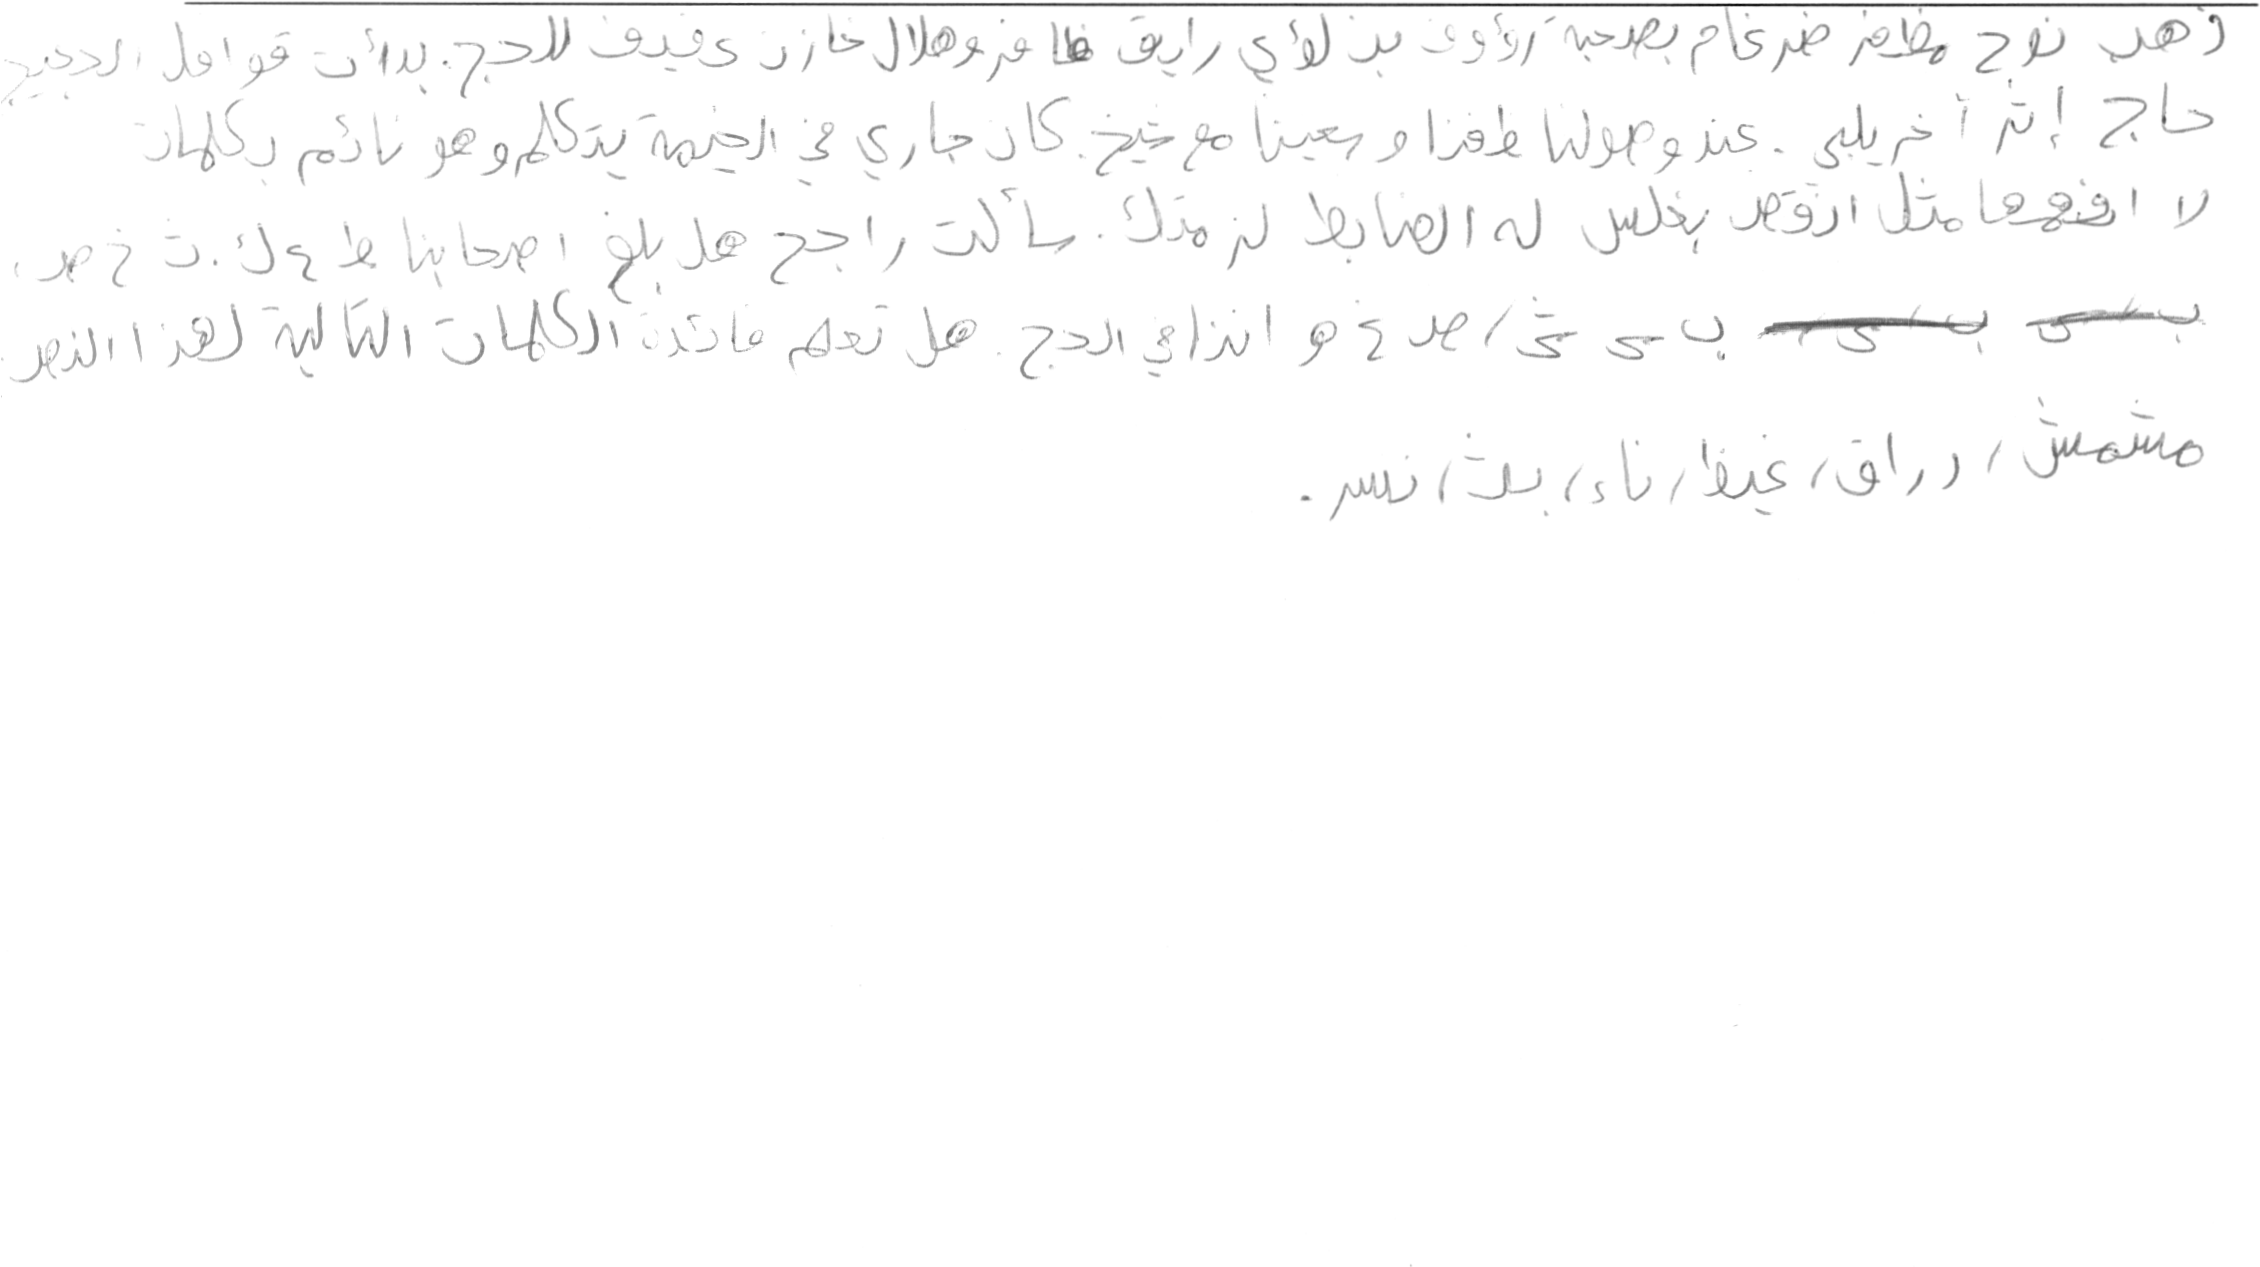 ذهب نوح مظفر ضرغام بصحبة رؤوف بن لؤي رايق ظافر وهلال خازن عفيف للحج. بدأت قوافل الحجيج
حاج إثر آخر يلبي. عند وصولنا طفنا وسعينا مع شيخ. كان جاري في الخيمة يتكلم وهو نائم بكلمات
لا افهمها مثل انوقص بغلس له الضابط لزمتك. سألت راجح هل بلغ اصحابنا ط ع ك. ث خ ص،
ب ى ئ، ص غ هو اننا في الحج. هل تعلم فائدة الكلمات التالية لهذا النص
مشمش، دراق، غيظ، ناء، بث، نسر.